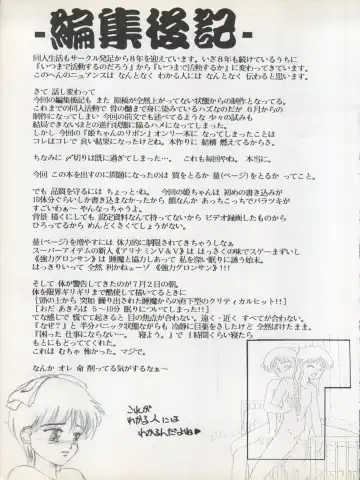 -編集後記-
同人生活もサークル発足から８年を迎えています。いざ８年も続けているうちに
『いつまで活動するのだろう』から『いつまで活動するか』に変わってきています。
このへんのニュアンスは なんとなく わかる人には なんとなく 伝わると思います。
さて 話し変わって
今回の編集後記も また 原稿が全然上がってない状態からの制作となってる。
これまでの同人活動で 骨の髄まで身に染みているハズなのだが ６月からの
制作になってしまい 今回の前文でも述べてるような 少々の試みも
結局できないほどの進行状態に陥るハメになってしまった。
しかし 今回の『姫ちゃんのリボン』オンリー本に なってしまったことは
コレはコレで 良い結果になったけどね。本作りに 結構 燃えてるからさ。
ちなみに 〆切りは既に過ぎてしまった…。 これも毎回やね。 本当に。
今回 この本を出すのに問題になったのは 質をとるか 量(ページ)をとるか ってこと。
でも 品質を守るには ちょっとね。 今回の姫ちゃんは 初めの書き込みが
10体分ぐらいしか書き込まなかったから 顔なんか あっちこっちでバラツキが
すごいわぁ～ やんなっちゃうよ。
背景 描くにしても 設定資料なんて持ってないから ビデオ録画したものから
ひろってるから めんどくさくてしょうがない。
量(ページ)を増やすには 体力的に制限されてきちゃうしなぁ
スーパーアイテムの新人《アリナミンＶ＆Ｖ》は はっさくの味でスゲーまずいし
《強力グロンサン》は 睡魔と協力しあって 私を深い眠りに誘う始末。
はっきりいって 全然 利かねェーゾ 《強力グロンサン》！！
そして 体が警告してきたのが ７月２日の朝。
体を限界ギリギリまで酷使して描いてるときに
[頭の上から 突如 繰り出された睡魔からの直下型のクリティカルヒット!!]
[おだ あきらは ５～10分 眠りについてしまった!!]
てな感じで 慌てて起きると 目の焦点が合わない。遠く・近く すべてが合わない。
『なぜ？』と 半分パニック状態ながらも 冷静に目薬をさしたけど 全然ぼけたまま。
『困った 仕事にならない…。 寝よう。』で １時間ぐらい寝たら
もとにもどってきてくれた。
これは むちゃ 怖かった。マジで。
なんか オレ 命 削ってる気がするなぁ～
これが
わかる人には
わかるんだよね♥